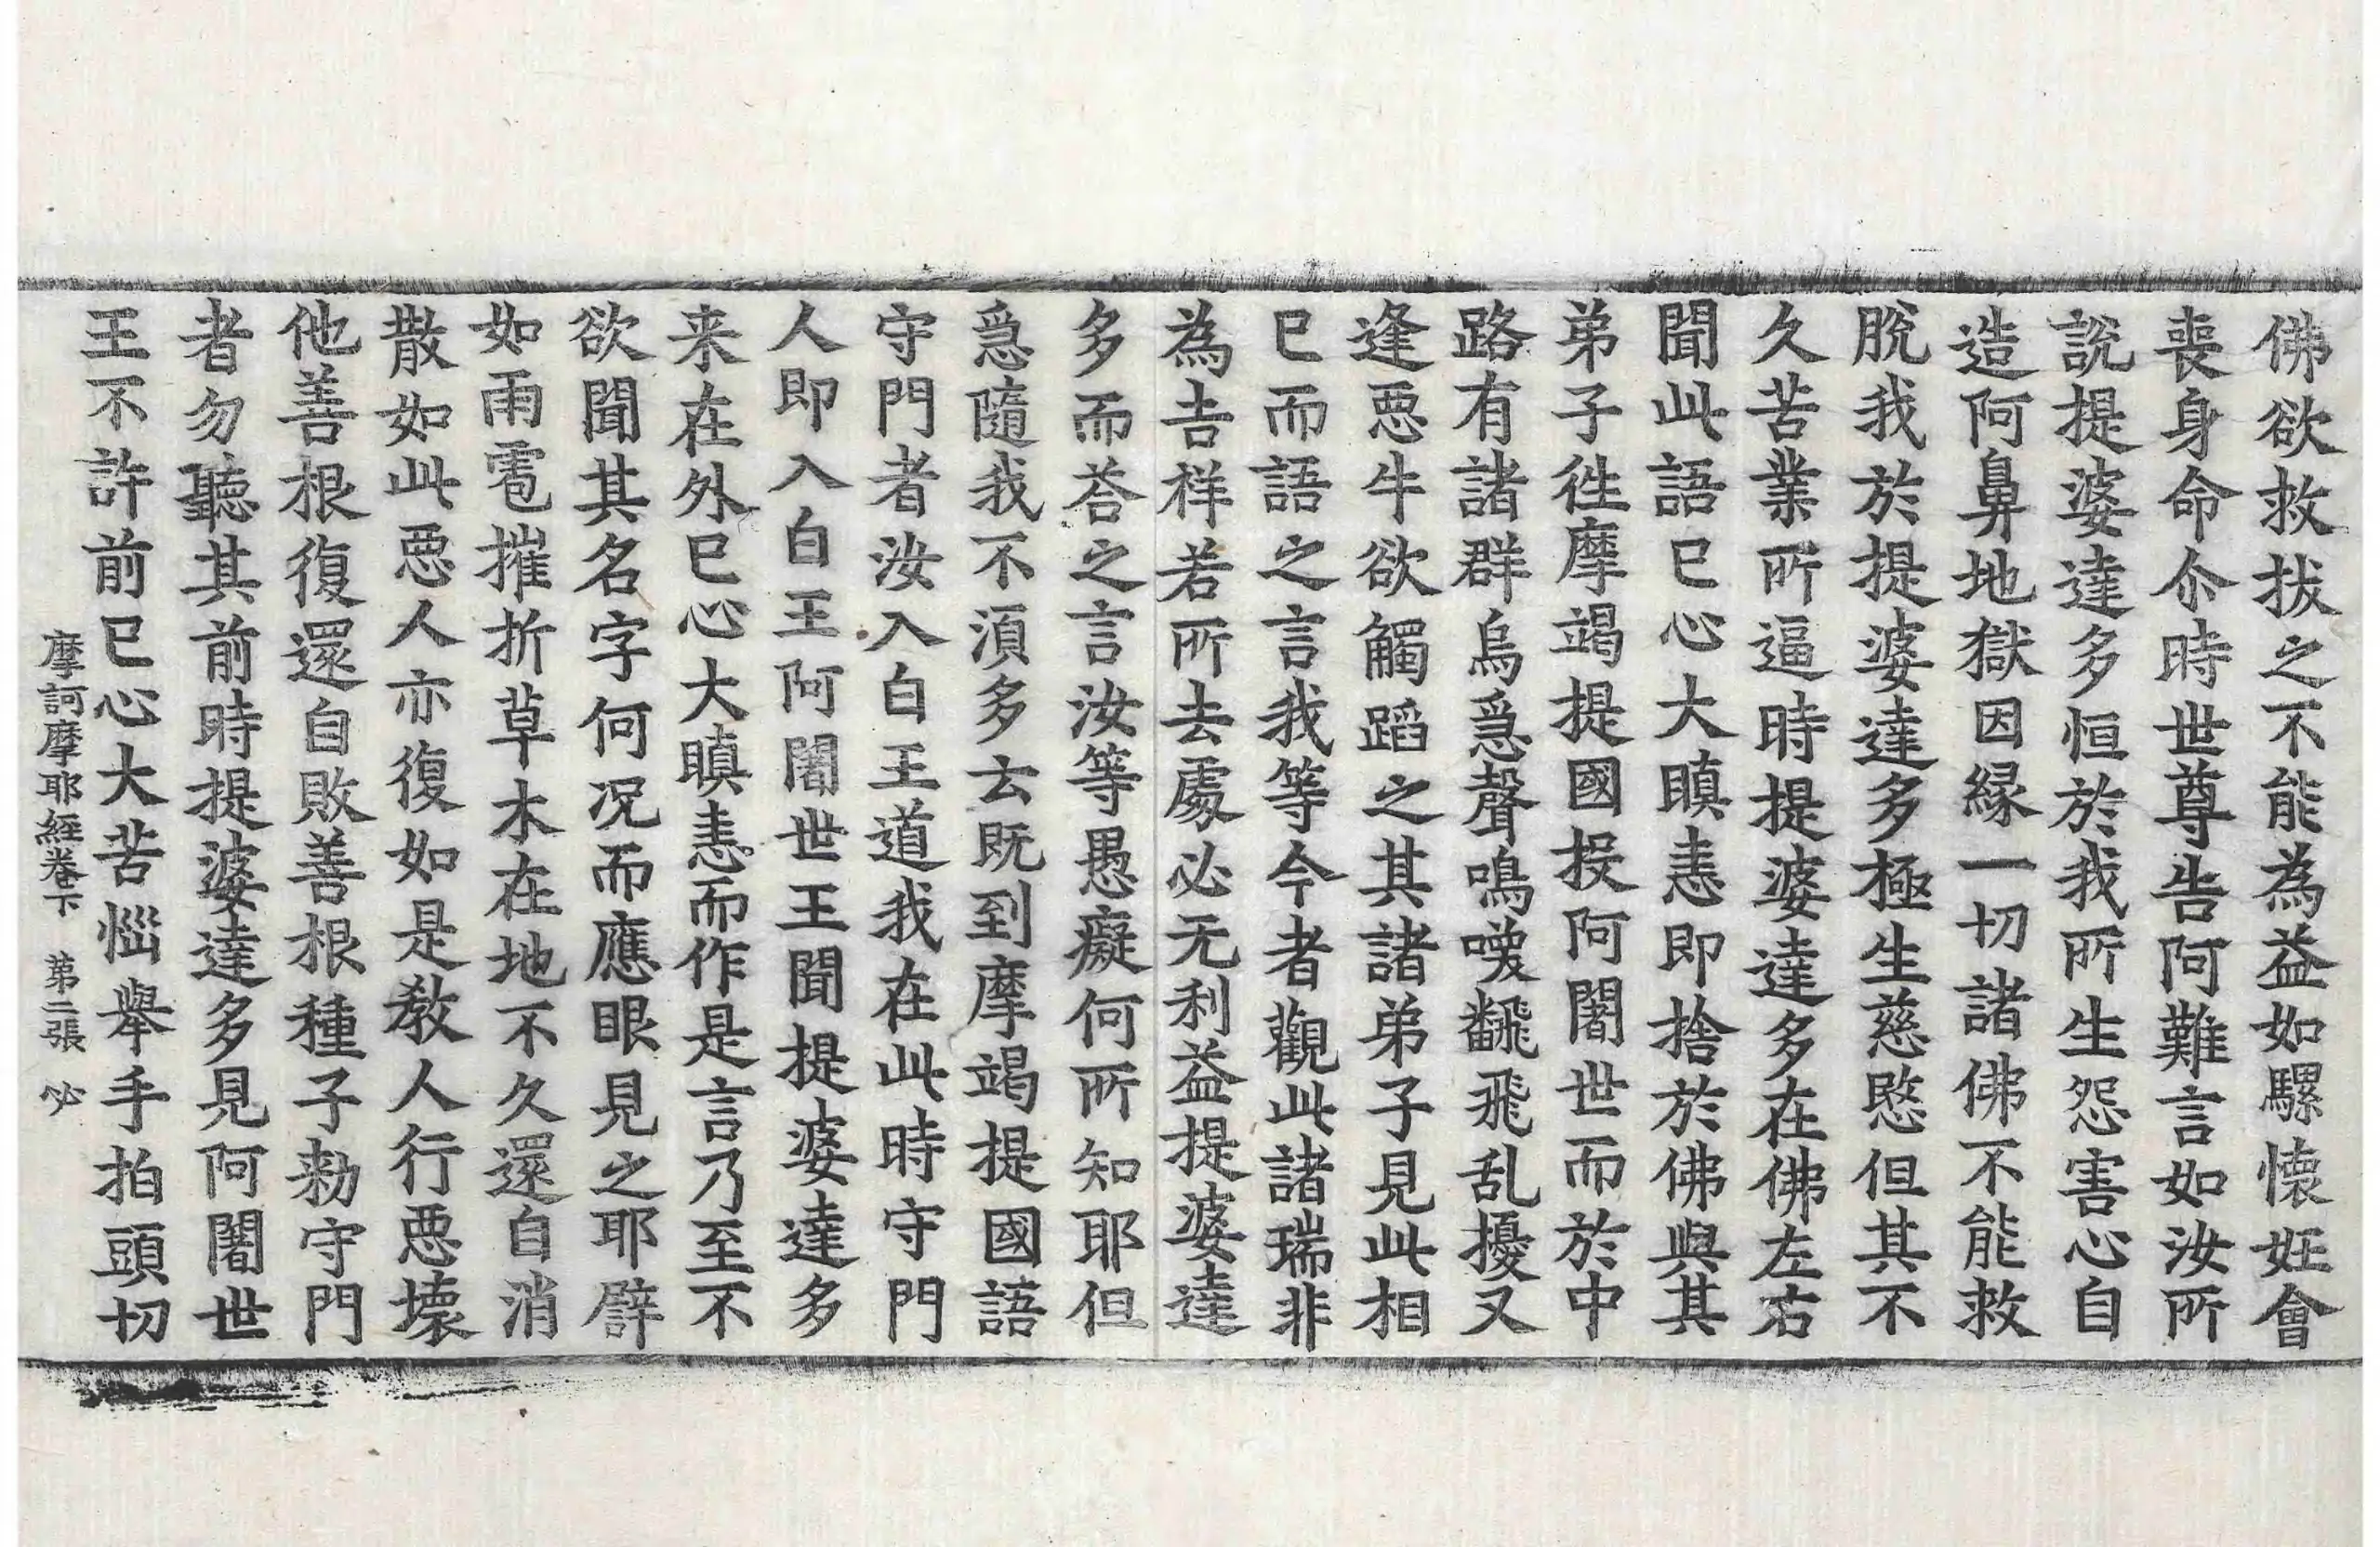 佛欲救拔之不能為益如騾懷妊會
喪身命尒時世尊告阿難言如汝所
說提婆達多恒於我所生怨害心自
造阿鼻地獄因緣一切諸佛不能救
脫我於提婆達多極生慈愍但其不
久苦業所逼時提婆達多在佛左右
聞此語已心大瞋恚即捨於佛與其
弟子徃摩竭提國投阿闍世而於中
路有諸群烏惡聲鳴喚飜飛乱擾又
逢惡牛欲觸蹈之其諸弟子見此相
已而語之言我等今者觀此諸瑞非
為吉祥若所去處必无利益提婆達
多而荅之言汝等愚癡何所知耶但
急隨我不須多云既到摩竭提國語
守門者汝入白王道我在此時守門
人即入白王阿闍世王聞提婆達多
来在外已心大瞋恚而作是言乃至不
欲聞其名字何况而應眼見之耶譬
如雨雹摧折草木在地不久還自消
散如此惡人亦復如是教人行惡壞
他善根復還自敗善根種子勑守門
者勿聽其前時提婆達多見阿闍世
王不許前已心大苦惱舉手拍頭切
摩訶摩耶經卷下　第二張　必